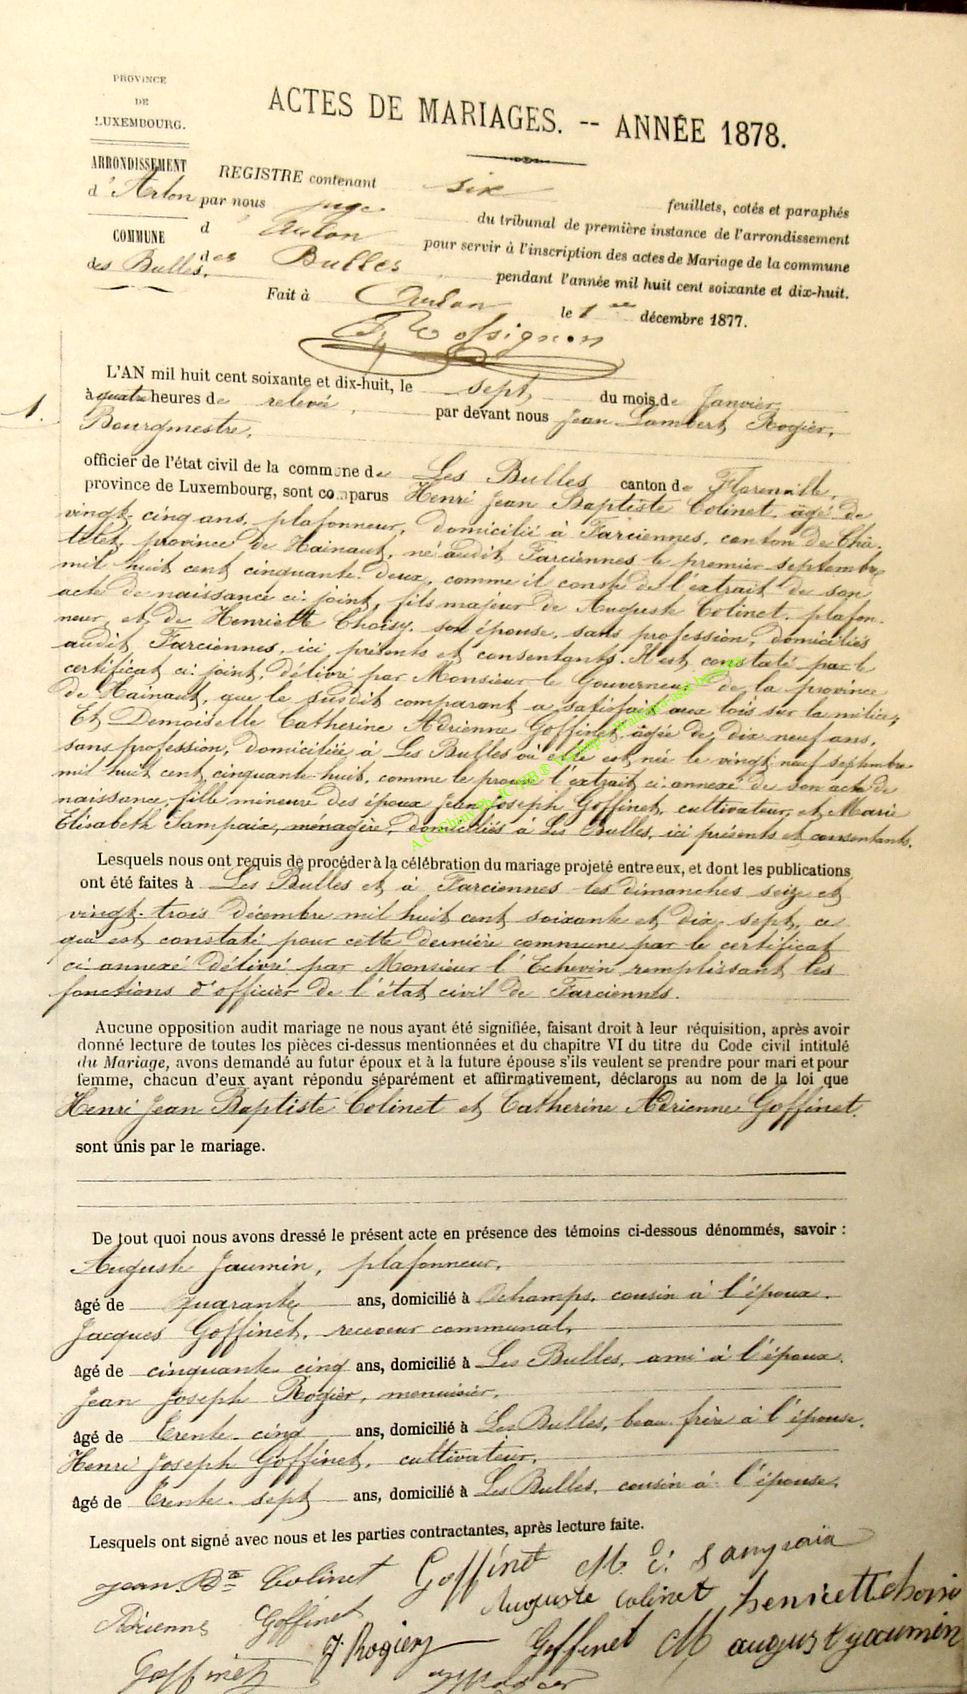 PROVINCE
DE
LUXEMBOURG.
ACTES DE MARIAGES. -- ANNÉE 1878.
ARRONDISSEMENT
d'Arlon
COMMUNE
des Bulles.
REGISTRE contenant six feuillets, cotés et paraphés
par nous juge du tribunal de première instance de l'arrondissement
d Arlon pour servir à l'inscription des actes de Mariage de la commune
des Bulles pendant l'année mil huit cent soixante et dix-huit.
Fait à Arlon le 1er décembre 1877.
1.
L'AN mil huit cent soixante et dix-huit, le sept, du mois de Janvier,
à quatre heures de relevée, par devant nous Jean Lambert Rogier,
Bourgmestre,
officier de l'état civil de la commune de Les Bulles canton de Florenville,
province de Luxembourg, sont comparus Henri Jean Baptiste Colinet, âgé de
vingt-cinq ans, plafonneur, domicilié à Farciennes, canton de Châ-
telet, province de Hainaut, né audit Farciennes le premier septembre
mil huit cent cinquante-deux, comme il conste de l'extrait de son
acte de naissance ci-joint, fils majeur de Auguste Colinet, plafon-
neur, et de Henriette Choisy, son épouse, sans profession, domiciliés
audit Farciennes, ici présents et consentants. Il est constaté par le
certificat ci-joint, délivré par Monsieur le Gouverneur de la province
de Hainaut, que le susdit comparant a satisfait aux lois sur la milice,
Et Demoiselle Catherine Adrienne Goffinet, âgée de dix neuf ans,
sans profession, domiciliée à Les Bulles où elle est née le vingt-neuf septembre
mil huit cent cinquante-huit, comme le prouve l'extrait ci-annexé de son acte de
naissance, fille mineure des époux Jean Joseph Goffinet, cultivateur, et Marie
Elisabeth Sampaix, ménagère, domiciliés à Les Bulles, ici présents et consentants.
Lesquels nous ont requis de procéder à la célébration du mariage projeté entre eux, et dont les publications
ont été faites à Les Bulles et à Farciennes les dimanches seize et
vingt-trois décembre mil huit cent soixante et dix-sept, ce
qui est constaté pour cette dernière commune par le certificat
ci-annexé délivré par Monsieur l'Echevin remplissant les
fonctions d'officier de l'état civil de Farciennes.
Aucune opposition audit mariage ne nous ayant été signifiée, faisant droit à leur réquisition, après avoir
donné lecture de toutes les pièces ci-dessus mentionnées et du chapitre VI du titre du Code civil intitulé
du Mariage, avons demandé au futur époux et à la future épouse s'ils veulent se prendre pour mari et pour
femme, chacun d'eux ayant répondu séparément et affirmativement, déclarons au nom de la loi que
Henri Jean Baptiste Colinet et Catherine Adrienne Goffinet.
sont unis par le mariage.
De tout quoi nous avons dressé le présent acte en présence des témoins ci-dessous dénommés, savoir :
Auguste Jaumin, plafonneur,
âgé de quarante ans, domicilié à Ochamps, cousin à l'époux.
Jacques Goffinet, receveur communal,
âgé de cinquante-cinq ans, domicilié à Les Bulles, ami à l'époux.
Jean Joseph Rogier, menuisier,
âgé de trente-cinq ans, domicilié à Les Bulles, beau-frère à l'épouse.
Henri Joseph Goffinet, cultivateur,
âgé de trente-sept ans, domicilié à Les Bulles, cousin à l'épouse.
Lesquels ont signé avec nous et les parties contractantes, après lecture faite.
Jean Bte Colinet Goffinet M. E. Sampaix
Adrienne Goffinet Auguste Colinet henriette
Goffinet J. Rogier Goffinet M august jaumin